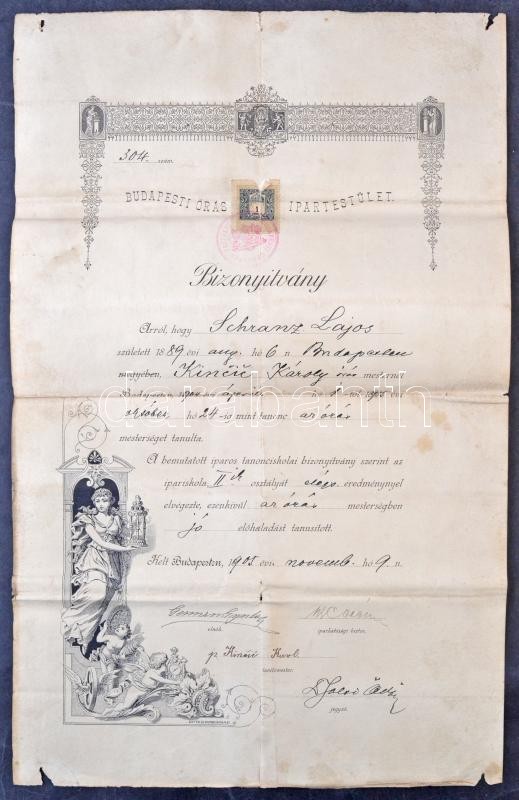 304. szám.
BUDAPESTI ÓRÁS IPARTESTÜLET.
1
Bizonyitvány
Arról, hogy Schranz Lajos
született 1889 évi aug. hó 6 n Budapesten
megyében, Kinčič Károly órás mesternél
Budapesten, 190 től 1905 évi
október hó 24-ig mint tanonc az órás
mesterséget tanulta.
A bemutatott iparos tanoncziskolai bizonyitvány szerint az
ipariskola II ik osztályát elégs. eredménynyel
elvégezte, ezenkivül az órás mesterségben
jó előhaladást tanusított.
Kelt Budapesten, 1905 évi novemb. hó 9. n.
elnök. iparhatósági biztos.
p. Kinčič Károly
tanitómester.
jegyző.
darabanth